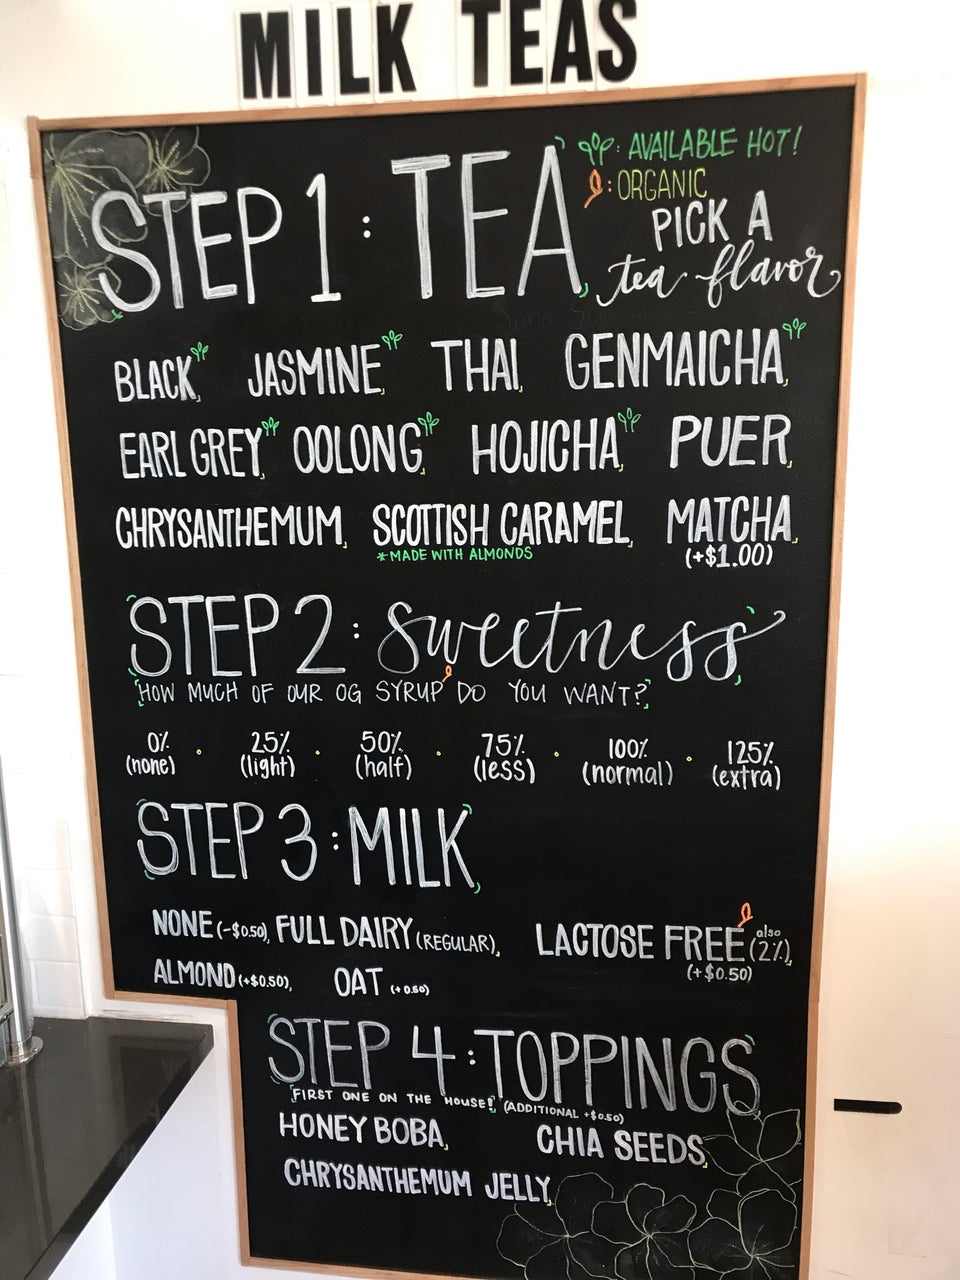 MILK TEAS
: AVAILABLE HOT!
: ORGANIC
STEP 1: TEA
PICK A
tea flavor
BLACK JASMINE THAI GENMAICHA
EARL GREY OOLONG HOJICHA PUER
CHRYSANTHEMUM SCOTTISH CARAMEL MATCHA
*MADE WITH ALMONDS (+$1.00)
STEP 2: sweetness
HOW MUCH OF OUR OG SYRUP DO YOU WANT?
0% · 25% · 50% · 75% · 100% · 125%
(none) (light) (half) (less) (normal) (extra)
STEP 3: MILK
NONE (-$0.50), FULL DAIRY (REGULAR), LACTOSE FREE also (2%),
(+$0.50)
ALMOND (+$0.50), OAT (+0.50)
STEP 4: TOPPINGS
FIRST ONE ON THE HOUSE! (ADDITIONAL +$0.50)
HONEY BOBA, CHIA SEEDS,
CHRYSANTHEMUM JELLY,